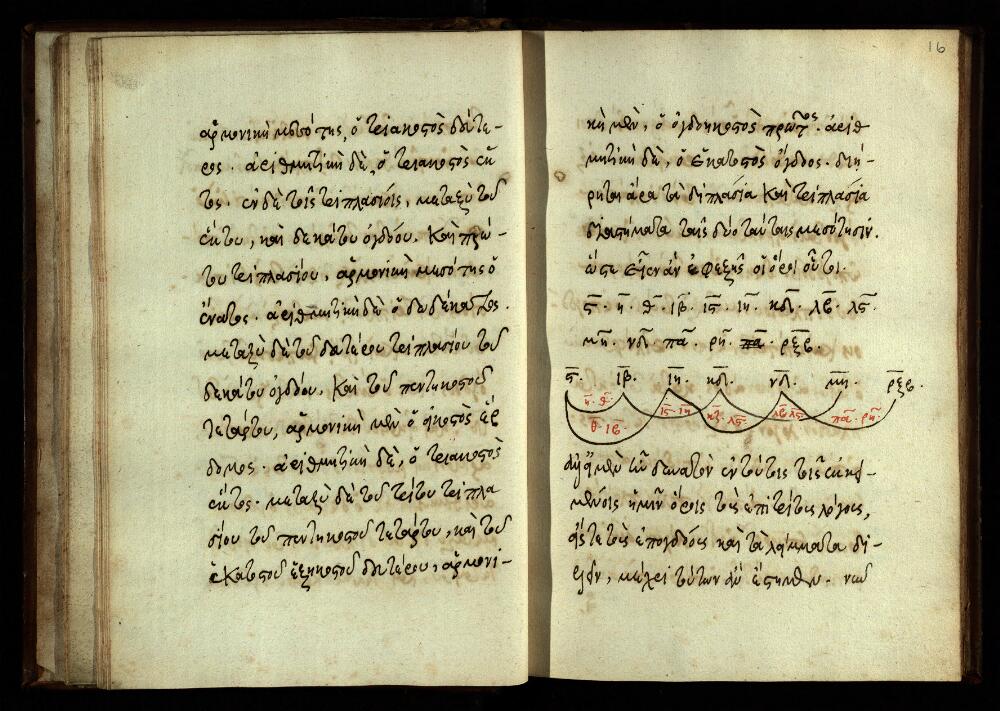 ἁρμονικὴ μεσότης, ὁ τριακοστὸς δεύτε-
ρος. ἀριθμητικὴ δὲ, ὁ τριακοστὸς ἕκ
τος. ἐν δὲ τοῖς τριπλασίοις, μεταξὺ τοῦ
ἕκτου, καὶ δεκάτου ὀγδόου. καὶ πρώ-
του τριπλασίου, ἁρμονικὴ μεσότης ὁ
ἔνατος. ἀριθμητικὴ δὲ ὁ δωδέκατος.
μεταξὺ δὲ τοῦ δευτέρου τριπλασίου τοῦ
δεκάτου ὀγδόου, καὶ τοῦ πεντηκοστοῦ
τετάρτου, ἁρμονικὴ μὲν ὁ εἰκοστὸς ἕβ
δομος. ἀριθμητικὴ δὲ, ὁ τριακοστὸς
ἕκτος. μεταξὺ δὲ τοῦ τρίτου τριπλα
σίου τοῦ πεντηκοστοῦ τετάρτου, καὶ τοῦ
ἑκατοστοῦ ἑξηκοστοῦ δευτέρου, ἁρμονι-
16
κὴ μὲν, ὁ ὀγδοηκοστὸς πρῶτος. ἀριθ
μητικὴ δὲ, ὁ ἑκατοστὸς ὄγδοος. διῄ-
ρηται ἄρα τὰ διπλάσια καὶ τριπλάσια
διαστήματα ταῖς δύο ταύταις μεσότησιν.
ὥστε εἶεν ἂν ἐφεξῆς οἱ ὅροι οὗτοι.
ς. η. θ. ιβ. ις. ιη. κδ. λβ. λς.
μη. νδ. πα. ρη. πα. ρξβ.
ς. ιβ. ιη. κδ. νδ. μη. ρξβ.
η. θ. ις. ιη. κζ. λς. λβ λς. πα. ρη.
θ. ιβ.
ἀλλ' ἐπεὶ οὐ δυνατὸν ἐν τούτοις τοῖς ἐκκει-
μένοις ἡμῖν ὅροις τοὺς ἐπιτρίτους λόγους,
εἴς τε τοὺς ἐπογδόους καὶ τὰ λείμματα δι-
ελεῖν, μέχρι τούτων ἂν ἔστημεν. νῦν